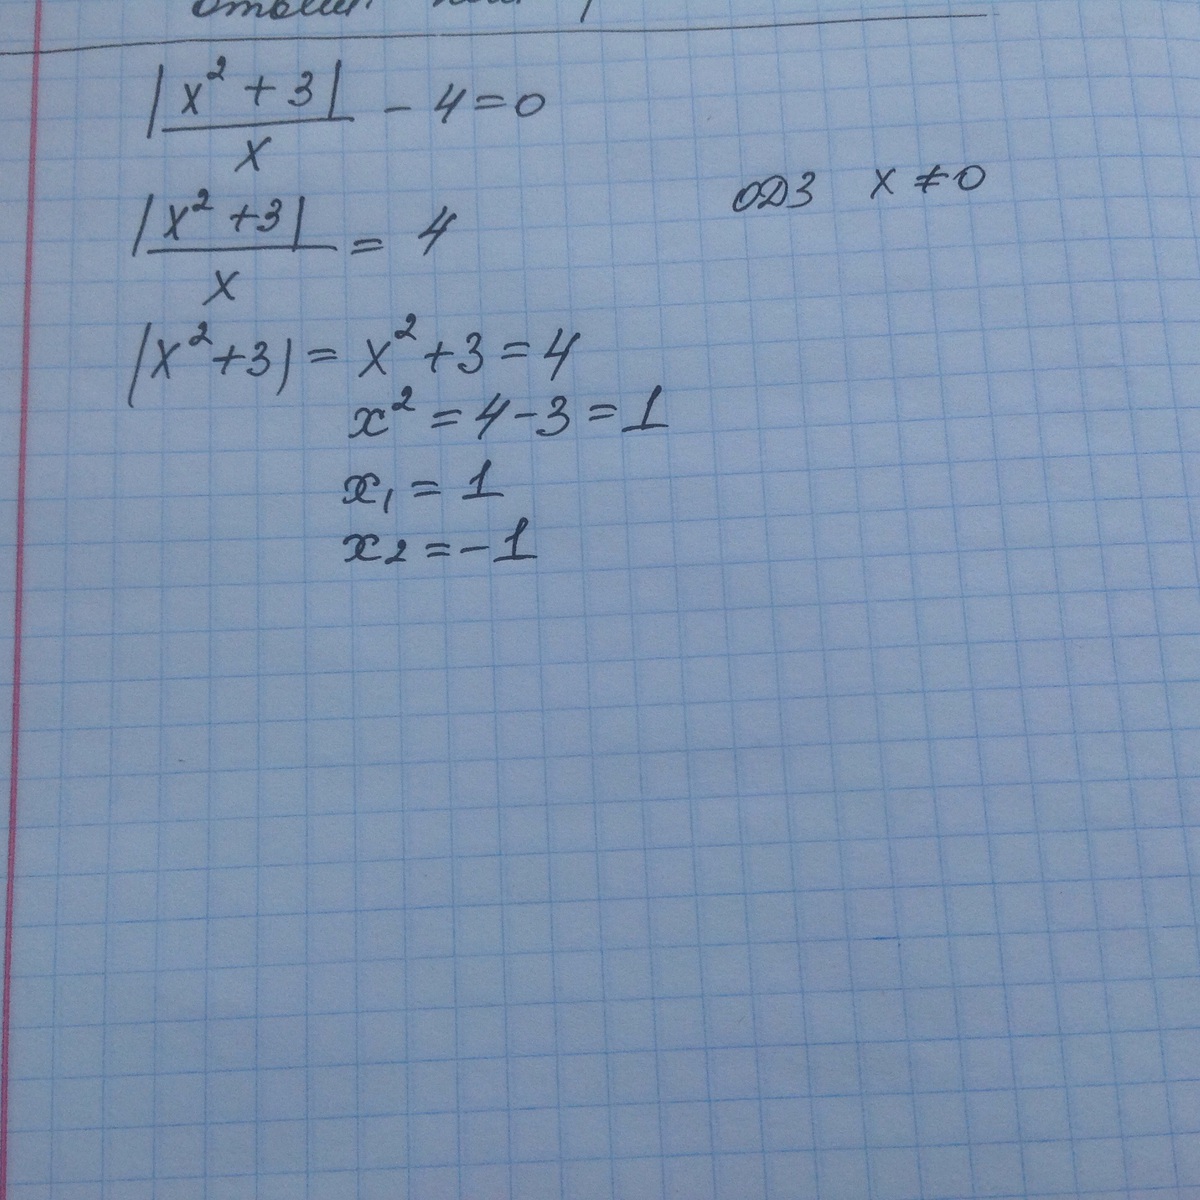 |x² + 3| / x - 4 = 0
ОДЗ x ≠ 0
|x² + 3| / x = 4
|x² + 3| = x² + 3 = 4
x² = 4 - 3 = 1
x₁ = 1
x₂ = -1